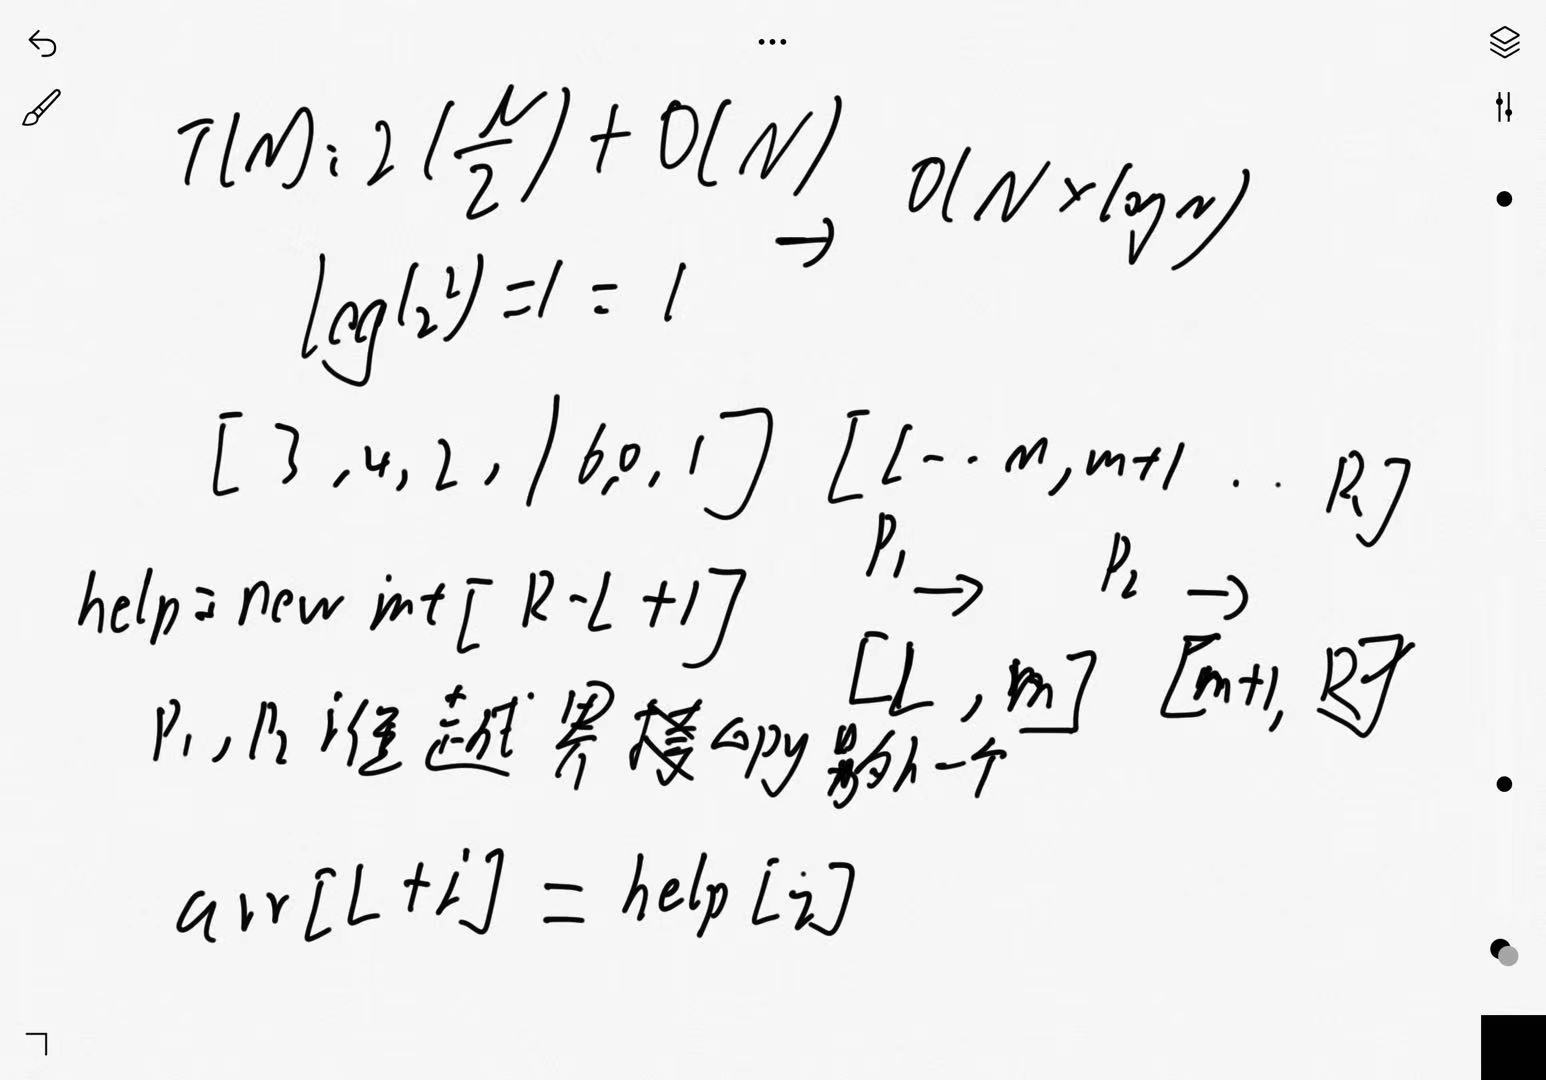 T(N): 2(N/2) + O(N) → O(N×logN)
log(₂²) = 1 = 1
[3, 4, 2, | 6, 0, 1] [L-·· m, m+1 .. R]
P₁ → P₂ →
help = new int[R-L+1]
[L, m] [m+1, R]
P₁, P₂ 谁越界接copy另外一个
arr[L+i] = help[i]